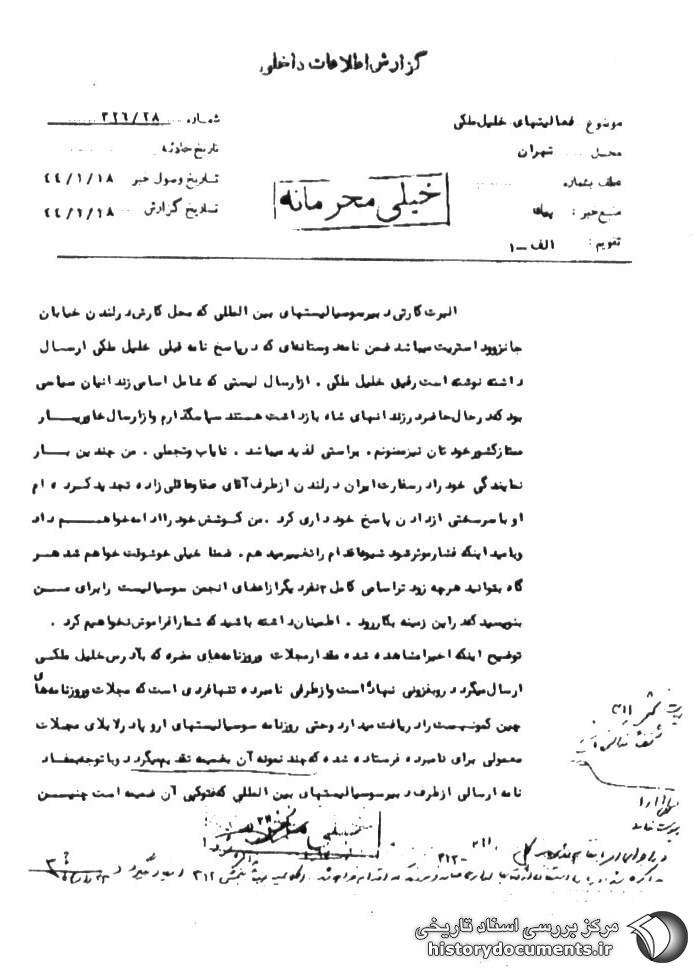 گزارش اطلاعات داخلی
موضوع فعالیتهای خلیل ملکی
شماره ۳۲۶/۲۸
محل تهران
تاریخ حادثه
عطف بشماره
تاریخ وصول خبر ۴۴/۱/۱۸
منبع خبر :
تاریخ گزارش ۴۴/۱/۱۸
تقویم : الف-۱
خیلی محرمانه
البرت کارتی دبیر سوسیالیستهای بین المللی که محل کارش در لندن خیابان
جانزوود استریت میباشد ضمن نامه دوستانه‌ای که در پاسخ نامه قبلی خلیل ملکی ارسال
داشته نوشته است رفیق خلیل ملکی . از ارسال لیستی که شامل اسامی زندانیان سیاسی
بود که در حال حاضر در زندانهای شاه بازداشت هستند سپاسگذارم و از ارسال خاویار
ممتاز کشور خودتان نیز ممنونم. براستی لذیذ میباشد . نایاب و تجملی . من چندین بار
نمایندگی خود را در سفارت ایران در لندن از طرف آقای صفا وعاقلی‌زاده تجدید کرده ام
او با سرسختی از دادن پاسخ خودداری کرد . من کوشش خود را ادامه خواهم داد
و بامید اینکه فشار موثر شود شیوه اقدام را تغییر میدهم . ضمنا خیلی خوشوقت خواهم شد هر
گاه بتوانید هرچه زودتر اسامی کامل ۳ نفر دیگر از اعضای انجمن سوسیالیست را برای من
بنویسید که در این زمینه بکار رود . اطمینان داشته باشید که شما را فراموش نخواهیم کرد .
توضیح اینکه اخیرا مشاهده شده مقدار مجلات و روزنامه‌های مضره که بآدرس خلیل ملکی
ارسال میگردد رو بفزونی نهاده است و از طرفی نامبرده تنها فردی است که مجلات و روزنامه‌های
چین کمونیست را دریافت میدارد و حتی روزنامه سوسیالیستهای اروپا در لابلای مجلات
معمولی برای نامبرده فرستاده شده که چند نمونه آن بضمیمه تقدیم میگردد و با توجه بمفاد
نامه ارسالی از طرف دبیر سوسیالیستهای بین المللی که فتوکپی آن ضمیمه است چنین
مرکز بررسی اسناد تاریخی
historydocuments.ir